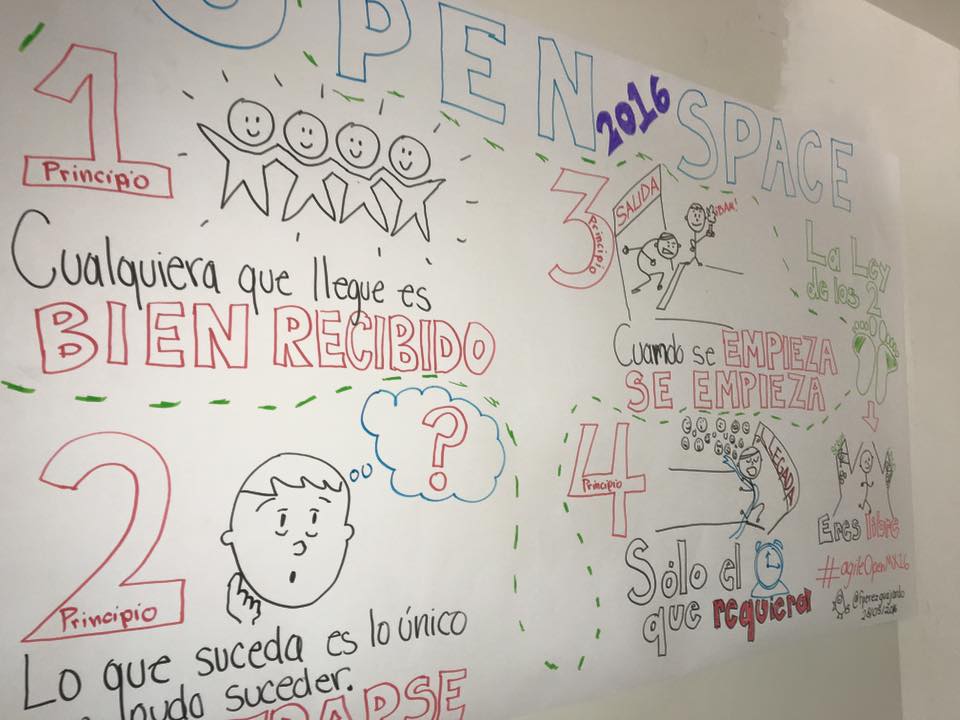 OPEN SPACE
2016
1
Principio
Cualquiera que llegue es
BIEN RECIBIDO
2
Principio
?
Lo que suceda es lo único
pudo suceder.
3
Principio
SALIDA
¡BAM!
Cuando se EMPIEZA
SE EMPIEZA
4
Principio
LLEGADA
Sólo el
que requiera!
La Ley
de los 2
Eres libre
#agileOpenMX16